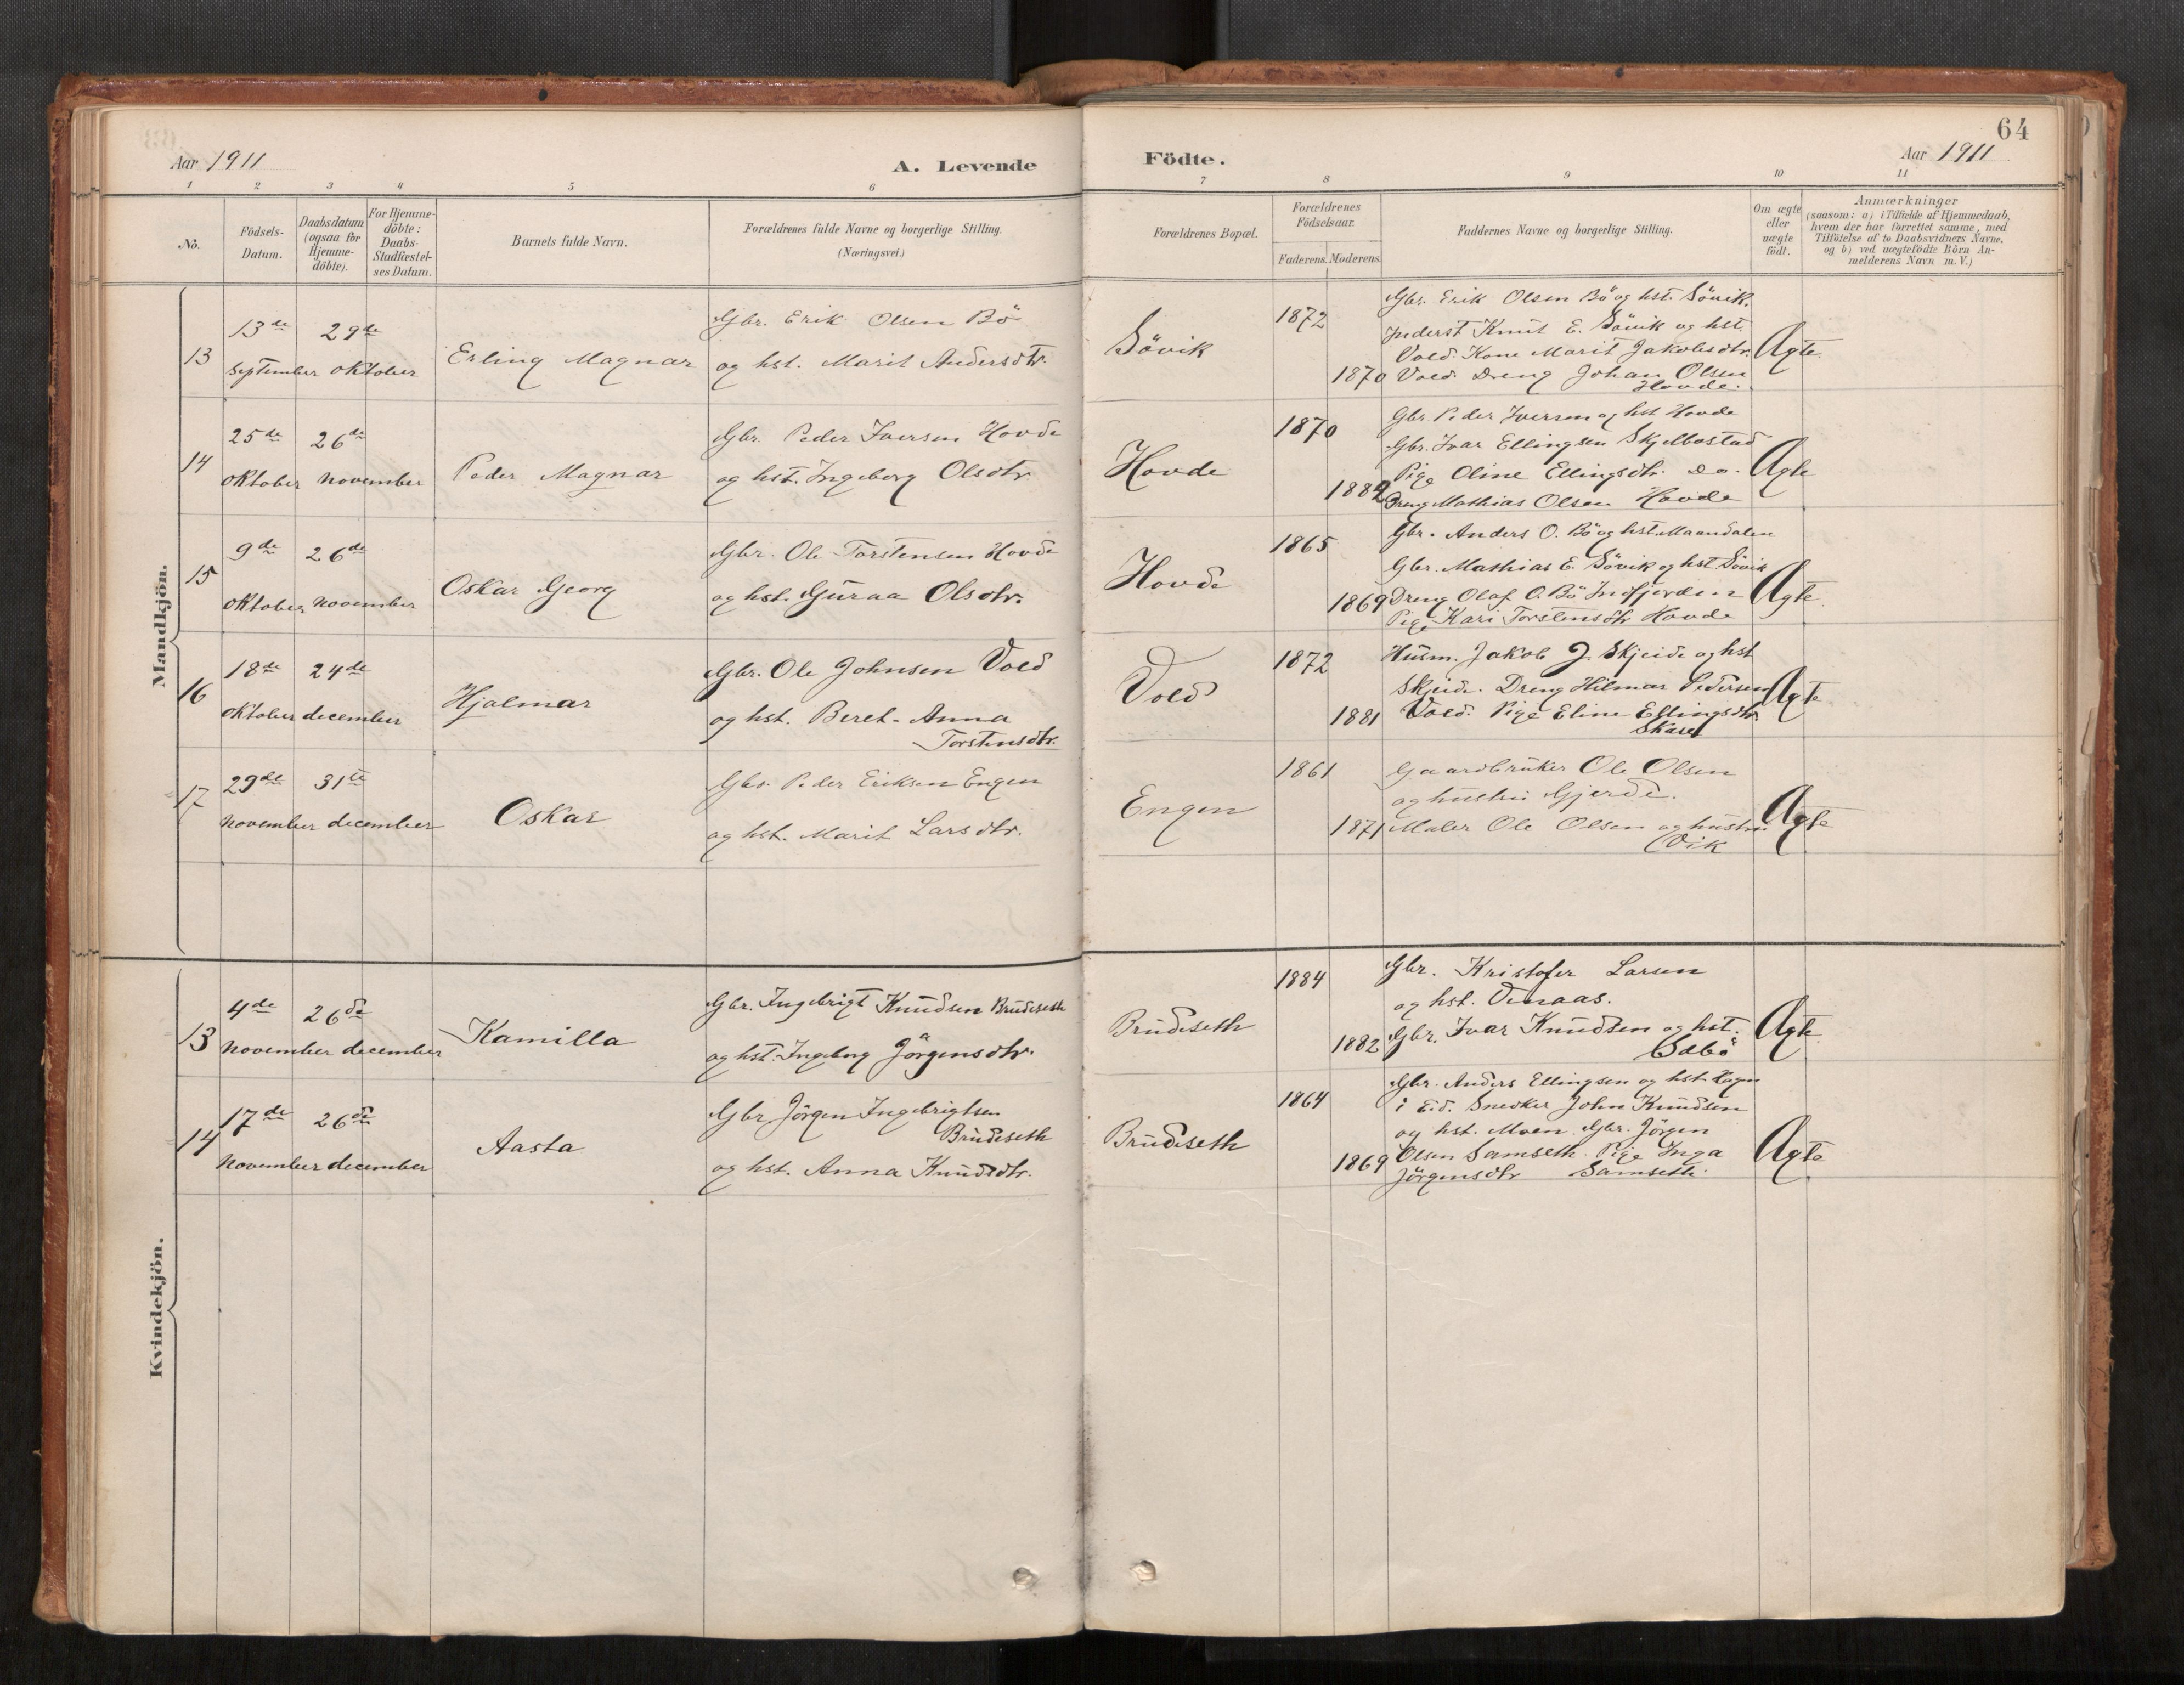 64
Aar 1911
A. Levende
Födte.
Aar 1911
1 2 3 4 5 6
7 8 9 10 11
No.
Födsels-
Datum.
Daabsdatum
(ogsaa for
Hjemme-
döbte).
For Hjemme-
döbte:
Daabs-
Stadfæstel-
ses Datum.
Barnets fulde Navn.
Forældrenes fulde Navne og borgerlige Stilling.
(Næringsvei.)
Forældrenes Bopæl.
Forældrenes
Födselsaar.
Faderens. Moderens.
Faddernes Navne og borgerlige Stilling.
Om ægte
eller
uægte
födt.
Anmærkninger
(saasom: a) i Tilfælde af Hjemmedaab,
hvem der har forrettet samme, med
Tilföielse af to Daabsvidners Navne,
og b) ved uægtefödte Börn An-
melderens Navn m. V.)
Mandkjön.
13
13de
September
29de
Oktober
Erling Magnar
Gbr. Erik Olsen Bö
og hst. Marit Andersdtr.
Sövik
1872
1870
Gbr. Erik Olsen Bö og hst. Sövik.
Inderst Knut E. Sövik og hst.
Vold. Kone Marit Jakobsdtr.
Vold. Dreng Johan Olsen
Hovde.
Ægte
14
25de
Oktober
26de
November
Peder Magnar
Gbr. Peder Iversen Hovde
og hst. Ingeborg Olsdtr.
Hovde
1870
1882
Gbr. Peder Iversen og hst Hovde
Gbr. Ivar Ellingsen Skjelbostad
Pige Oline Ellingsdtr. do.
Dreng Mathias Olsen Hovde
Ægte
15
9de
Oktober
26de
November
Oskar Georg
Gbr. Ole Torstensen Hovde
og hst. Guraa Olsdtr.
Hovde
1865
1869
Gbr. Anders O. Bö og hst. Maandalen
Gbr. Mathias E. Sövik og hst. Sövik
Dreng Olaf O. Bö Indfjorden
Pige Kari Torstensdtr Hovde
Ægte
16
18de
Oktober
24de
december
Hjalmar
Gbr. Ole Johnsen Vold
og hst. Beret-Anna
Torstensdtr.
Vold
1872
1881
Husm. Jakob J. Skjeide og hst
Skjeide. Dreng Hilmar Pedersen
Vold. Pige Eline Ellingsdtr.
Ægte
17
29de
November
31te
december
Oskar
Gbr. Peder Eriksen Engen
og hst. Marit Larsdtr.
Engen
1861
1871
Gaardbruker Ole Olsen
og hustru Gjerde.
Maler Ole Olsen og hustru
Vik
Ægte
Kvindekjön.
13
4de
November
26de
december
Kamilla
Gbr. Ingebrigt Knudsen Brudeseth
og hst. Ingeborg Jörgensdtr.
Brudeseth
1884
1882
Gbr. Kristofer Larsen
og hst. Venaas.
Gbr. Ivar Knudsen og hst.
Ægte
14
17de
November
26de
december
Aasta
Gbr Jörgen Ingebrigtsen
Brudeseth
og hst. Anna Knudsdtr.
Brudeseth
1864
1869
Gbr. Anders Ellingsen og hst. Hagen
i Eid. Snedker John Knudsen
og hst. Moen. Gbr. Jörgen
Olsen Samseth. Pige Inga
Jörgensdtr Samseth.
Ægte